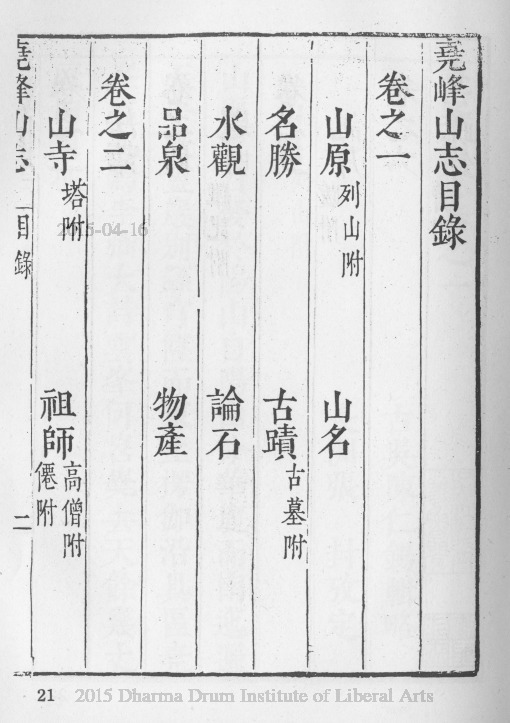 堯峰山志目錄
卷之一
山原 列山附 山名
名勝 古蹟 古墓附
水觀 論石
品泉 物產
卷之二
山寺 塔附 祖師 高僧附 僊附
堯峰山志 目錄 二
2015-04-16
21 2015 Dharma Drum Institute of Liberal Arts